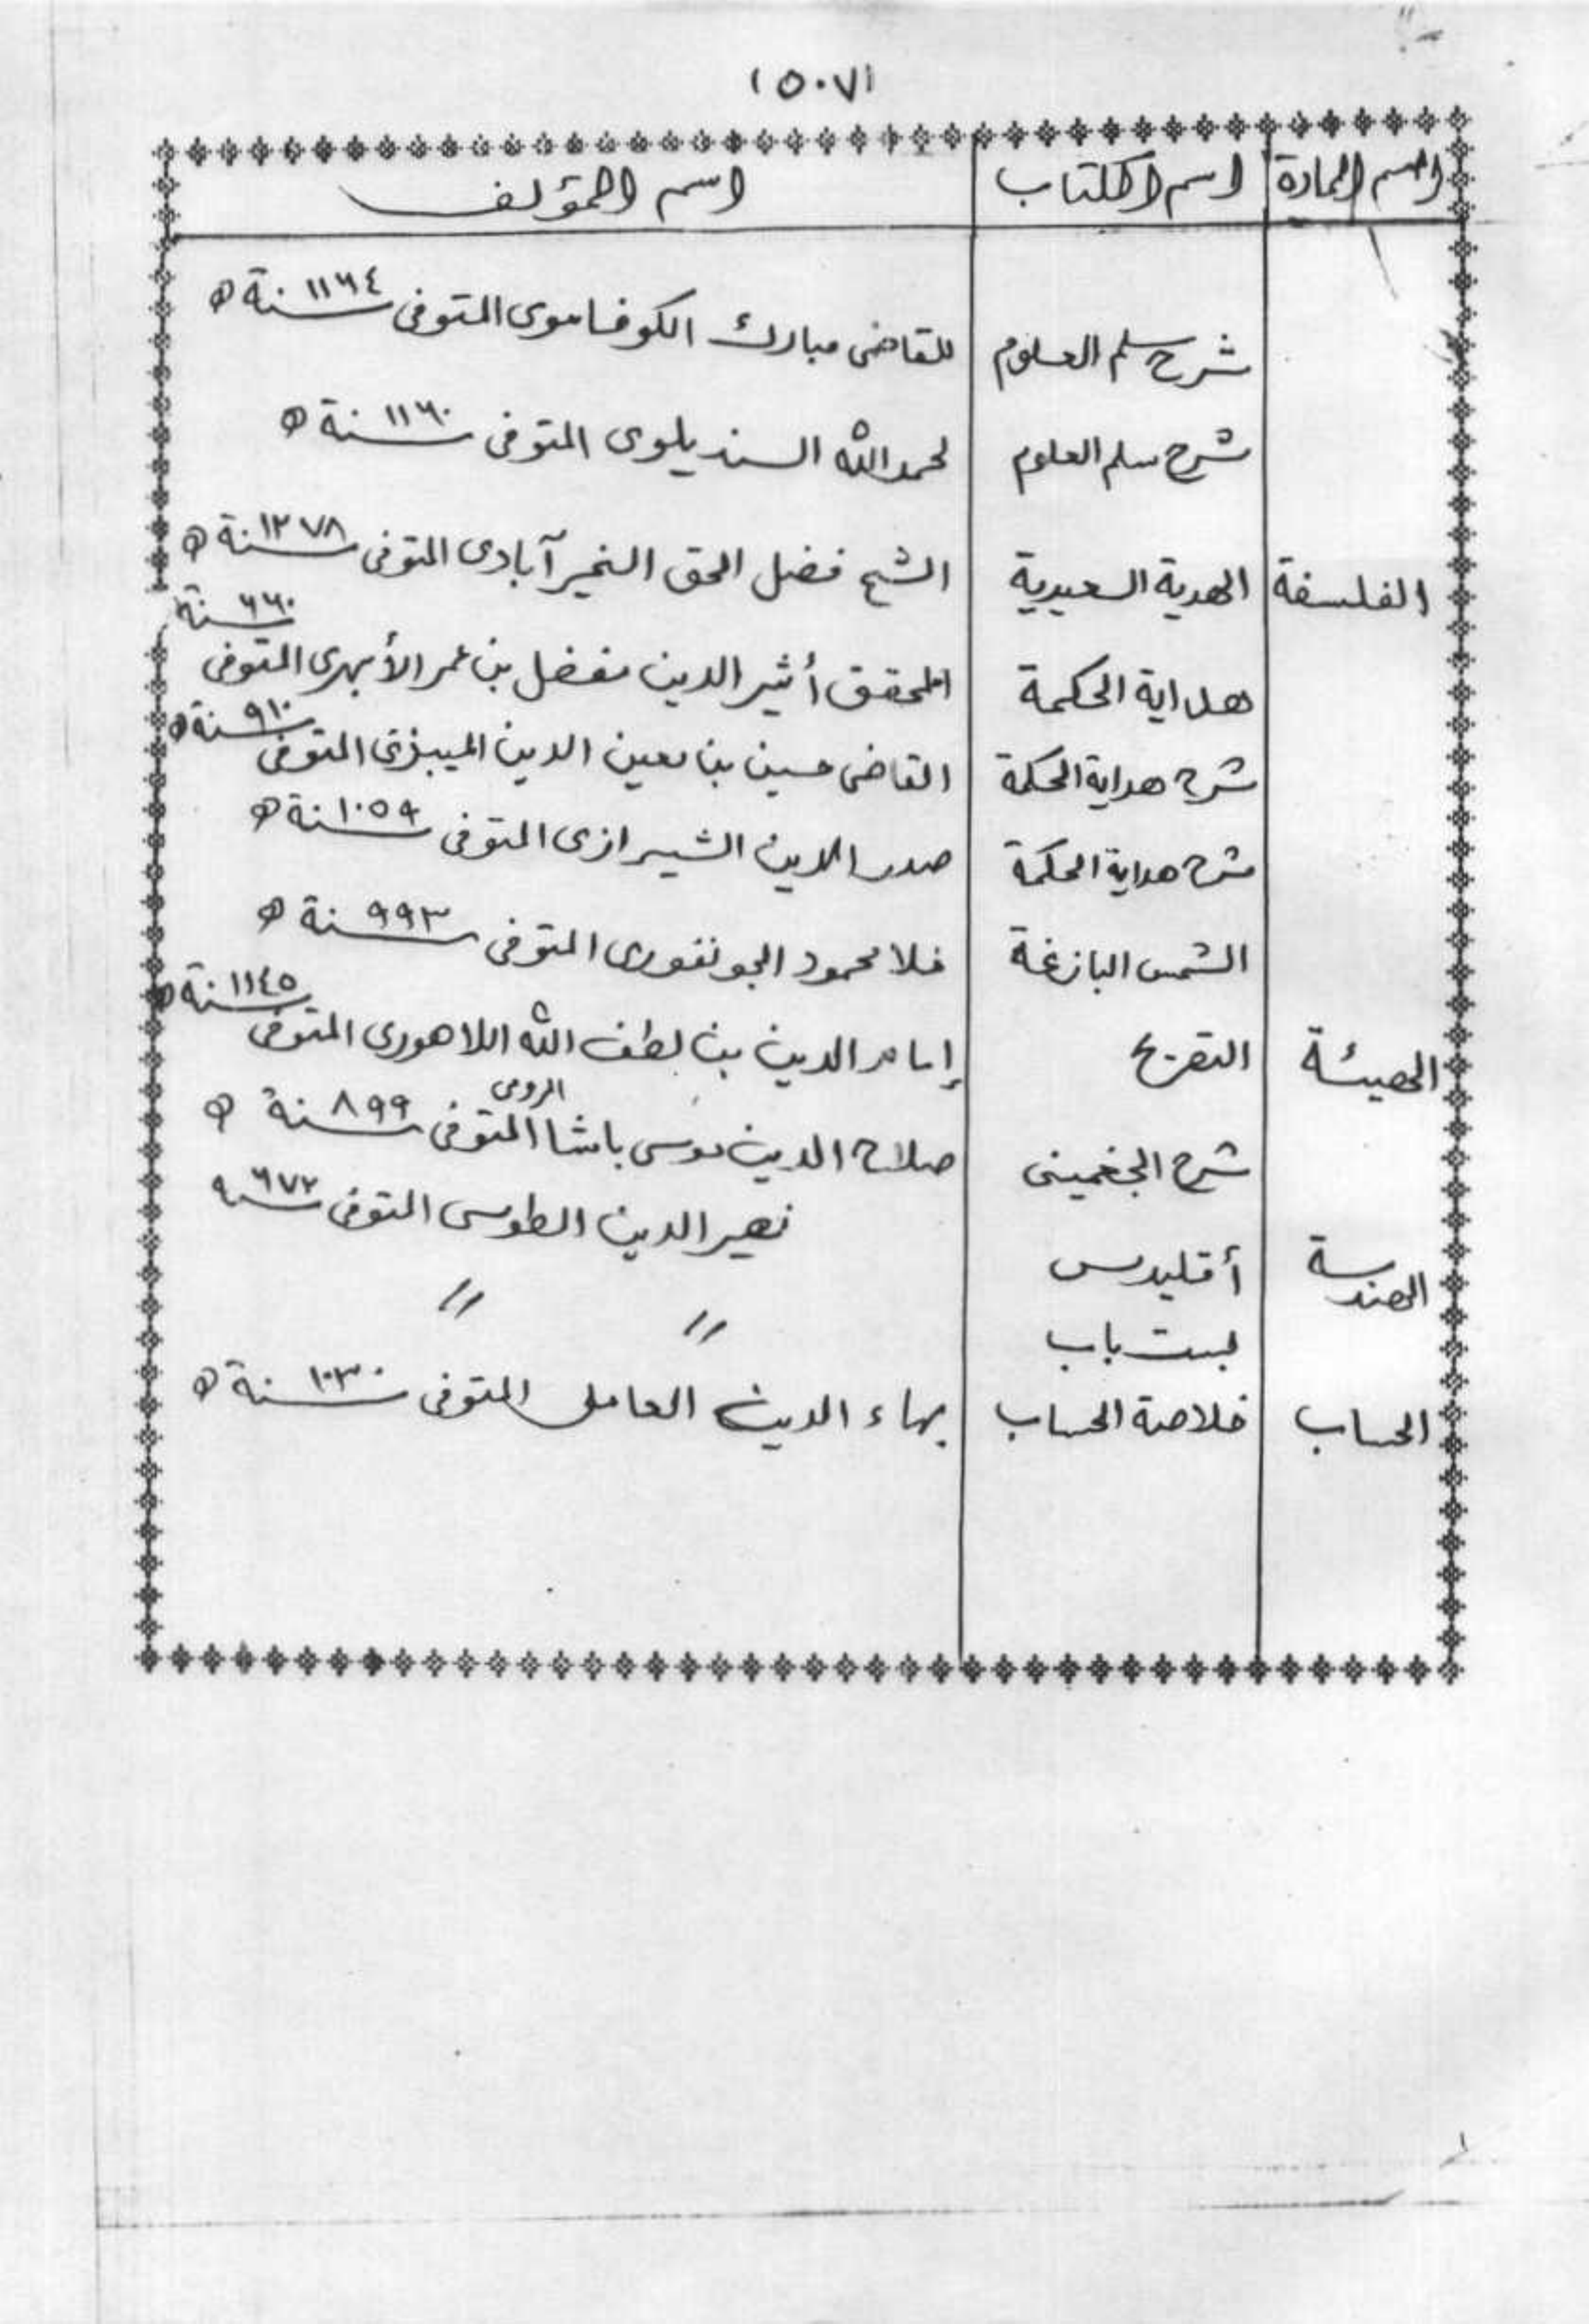 (٥٠٧)
اسم المادة اسم الكتاب اسم المؤلف
شرح سلم العلوم للقاضى مبارك الكوفاموى المتوفى سنة ١١٦٤ ه
شرح سلم العلوم لحمد الله السنديلوى المتوفى سنة ١١٦٠ ه
الفلسفة الهدية السعيدية الشيخ فضل الحق الخير آبادى المتوفى سنة ١٢٧٨ ه
هداية الحكمة المحقق أثير الدين مفضل بن عمر الأبهرى المتوفى سنة ٦٦٠
شرح هداية الحكمة القاضى حسين بن معين الدين الميبزى المتوفى سنة ٩١٠ ه
شرح هداية الحكمة صدر الدين الشيرازى المتوفى سنة ١٠٥٩ ه
الشمس البازغة ملا محمود الجونفورى المتوفى سنة ٩٩٣ ه
الهيئة التصريح إمام الدين بن لطف الله اللاهورى المتوفى سنة ١١٤٥ ه
شرح الجغمينى صلاح الدين موسى باشا الرومى المتوفى سنة ٨٩٩ ه
الهندسة أقليدس نصير الدين الطوسى المتوفى سنه ٦٧٢
بست باب // //
الحساب خلاصة الحساب بهاء الدين العاملى المتوفى سنة ١٠٣٠ ه